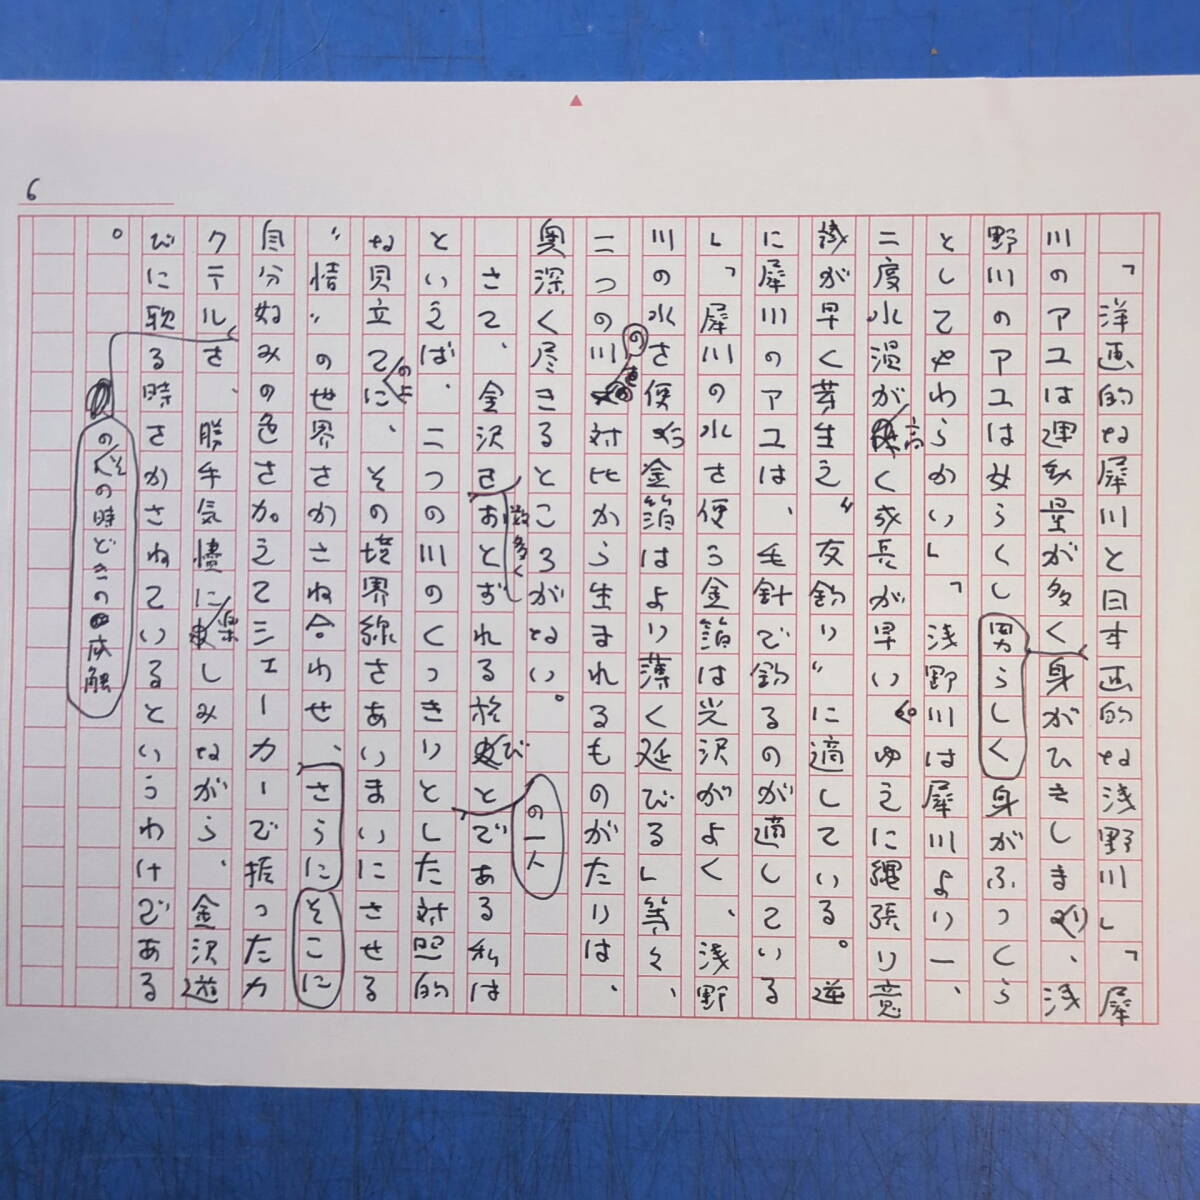 6
「洋画的な犀川と日本画的な浅野川」「犀
川のアユは運動量が多く男らしく身がひきしまり、浅
野川のアユは女らくし身がふっくら
としてやわらかい」「浅野川は犀川より一、
二度水温が高く成長が早い。ゆえに縄張り意
識が早く芽生え〝友釣り〟に適している。逆
に犀川のアユは、毛針で釣るのが適している
」「犀川の水を使う金箔は光沢がよく、浅野
川の水を使う金箔はより薄く延びる」等々、
二つの川の対比から生まれるものがたりは、
奥深く尽きるところがない。
さて、金沢を数多くおとずれる旅びとの一人である私は
といえば、二つの川のくっきりとした対照的
な見立てのように、その境界線をあいまいにさせる
〝情〟の世界をかさね合わせ、さらにそこに
自分好みの色をかえてシェーカーで振ったカ
クテルを、勝手気儘に楽しみながら、金沢遊
びに耽る時をかさねているというわけである
のその時どきの感触
。